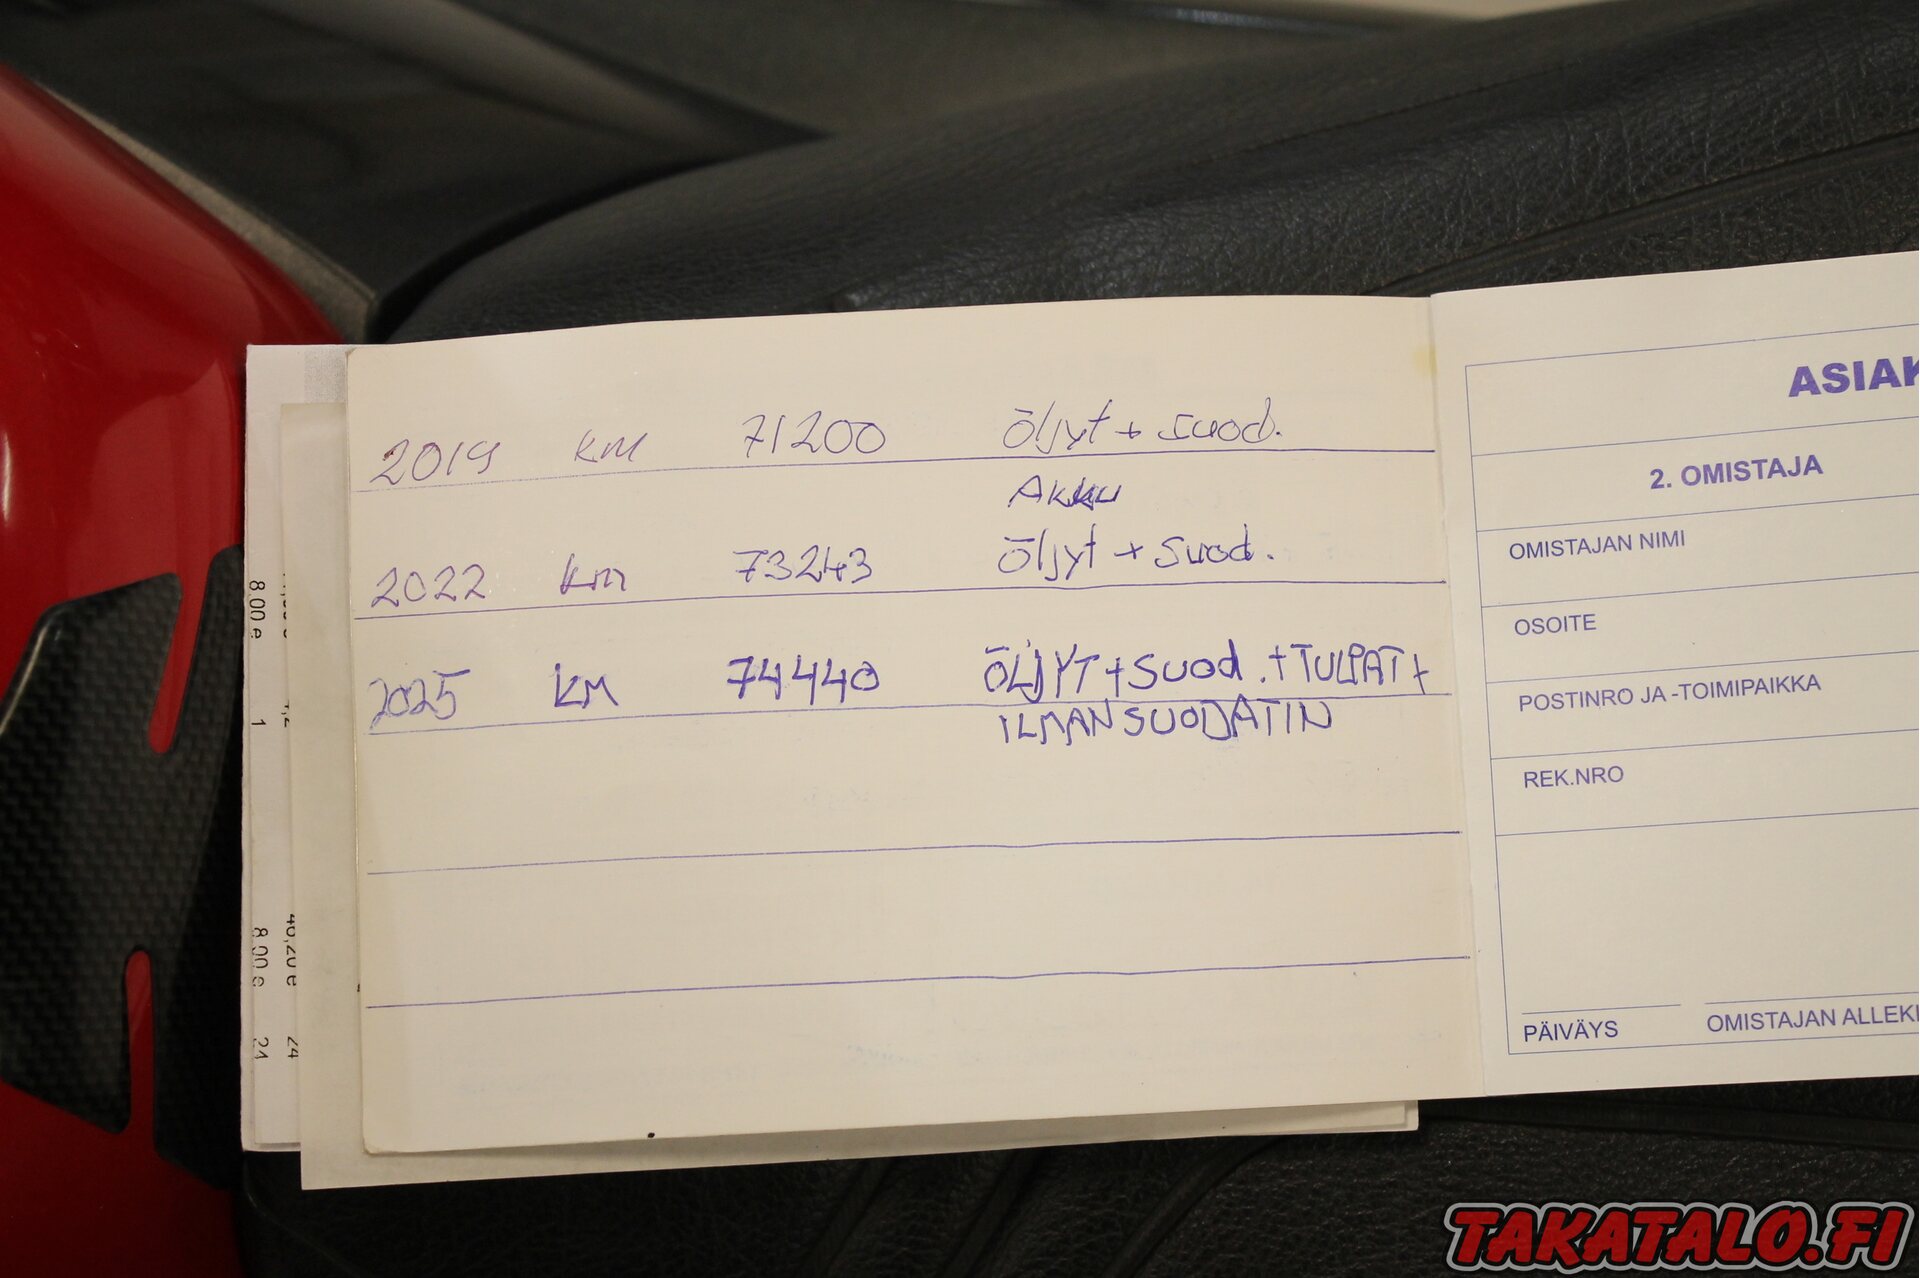 2019 KM 71200 Öljyt + suod.
Akku
2022 km 73243 Öljyt + suod.
2025 KM 74440 ÖLJYT + SUOD. + TULPAT +
ILMANSUODATIN
ASIAK
2. OMISTAJA
OMISTAJAN NIMI
OSOITE
POSTINRO JA -TOIMIPAIKKA
REK.NRO
PÄIVÄYS OMISTAJAN ALLEKI
8,00 e 1 8,00 e 24
46,20 e 24
TAKATALO.FI